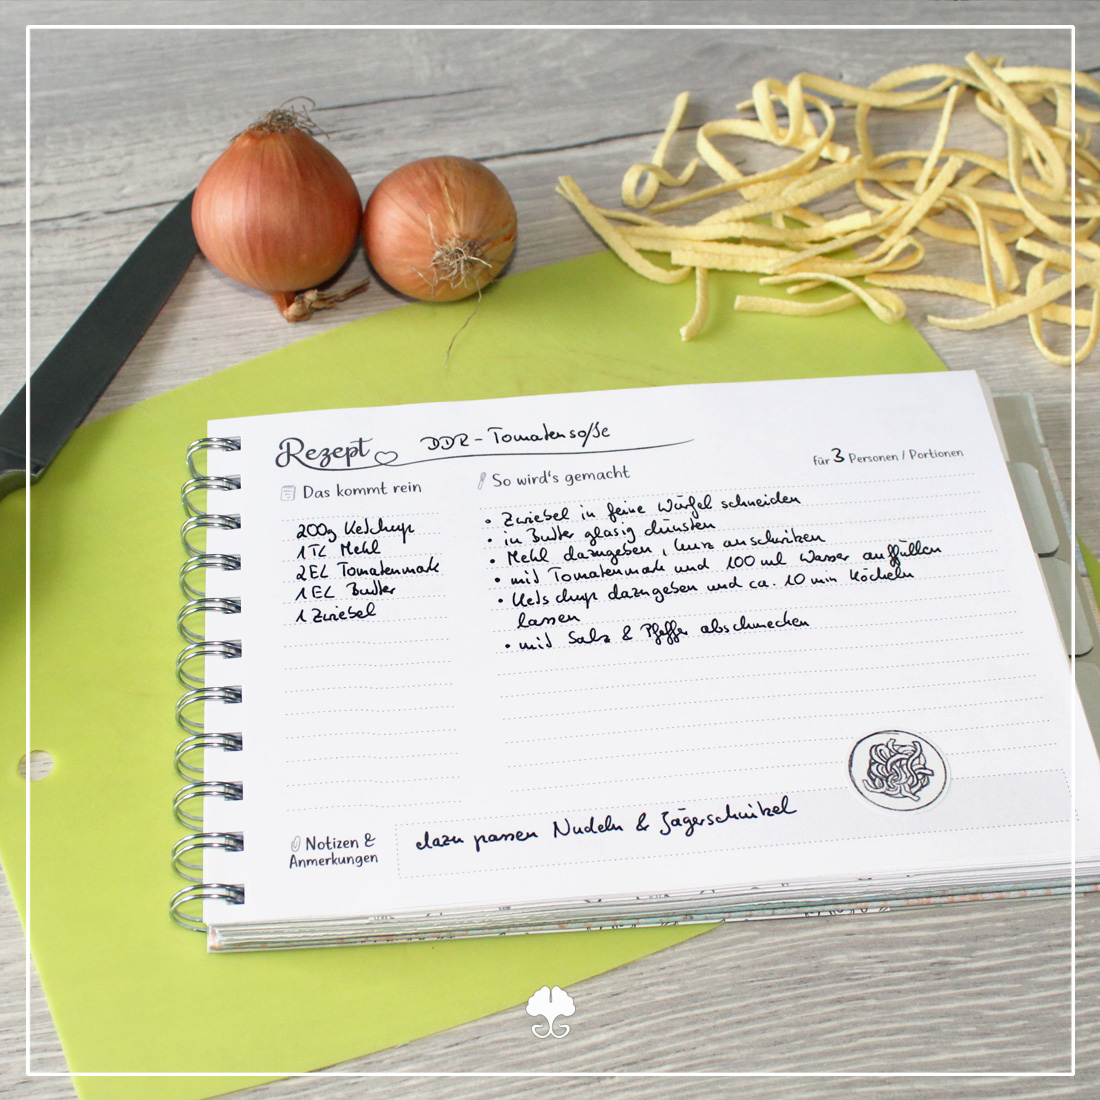 Rezept DDR-Tomatensoße
für 3 Personen / Portionen
Das kommt rein
200g Ketchup
1TL Mehl
2EL Tomatenmark
1EL Butter
1 Zwiebel
So wird's gemacht
• Zwiebel in feine Würfel schneiden
• in Butter glasig dünsten
• Mehl dazugeben, kurz anschwitzen
• mit Tomatenmark und 100ml Wasser auffüllen
• Ketschup dazugeben und ca. 10 min köcheln
lassen
• mit Salz & Pfeffer abschmecken
Notizen &
Anmerkungen
dazu passen Nudeln & Jägerschnitzel